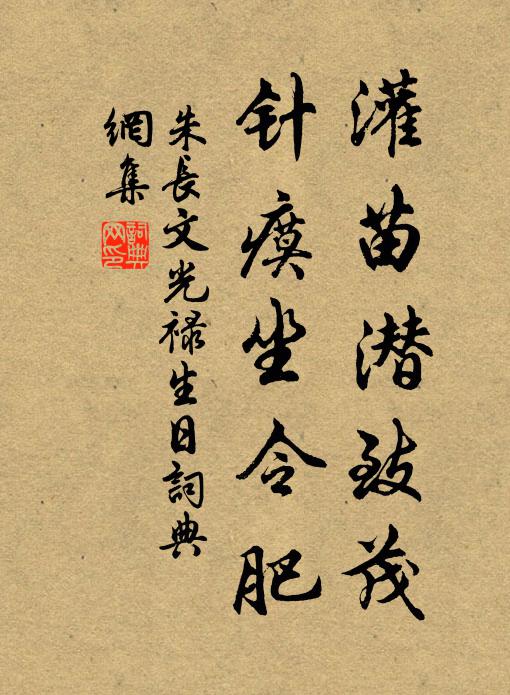 灌苗潜致茂
针瘼坐令肥
朱長文光禄生日詞典
網集
詞典网印